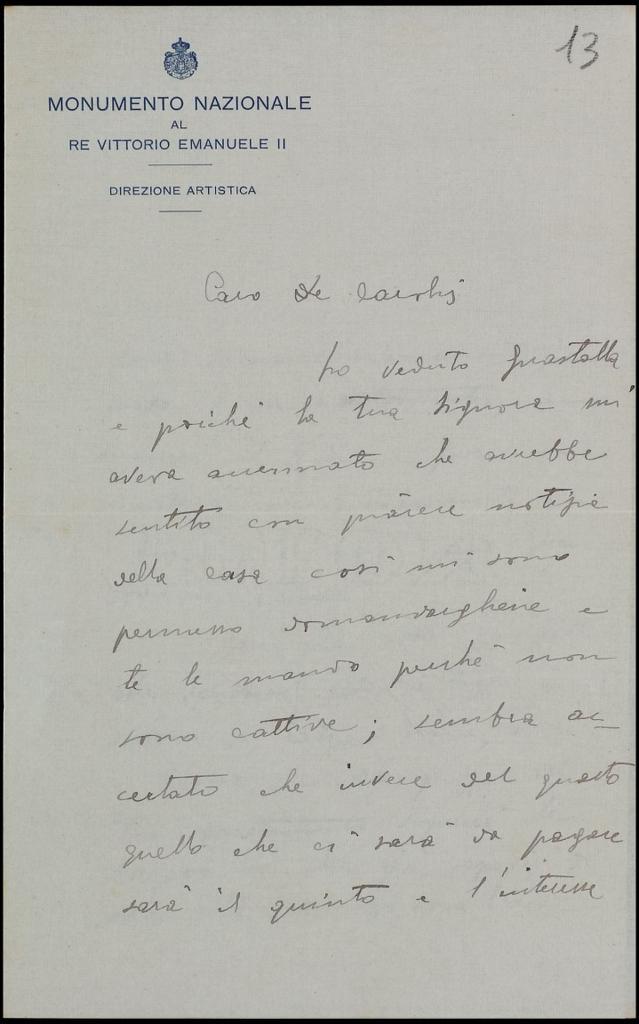 13
MONUMENTO NAZIONALE
AL
RE VITTORIO EMANUELE II
DIREZIONE ARTISTICA
Caro De
ho veduto Guastalla
e poiché la tua Signora mi
aveva accennato che avrebbe
sentito con piacere notizie
della casa così mi sono
permesso domandargliene e
te le mando perché non
sono cattive; sembra ac_
certato che invece del quarto
quello che ci sarà da pagare
sarà il quinto e l'interesse